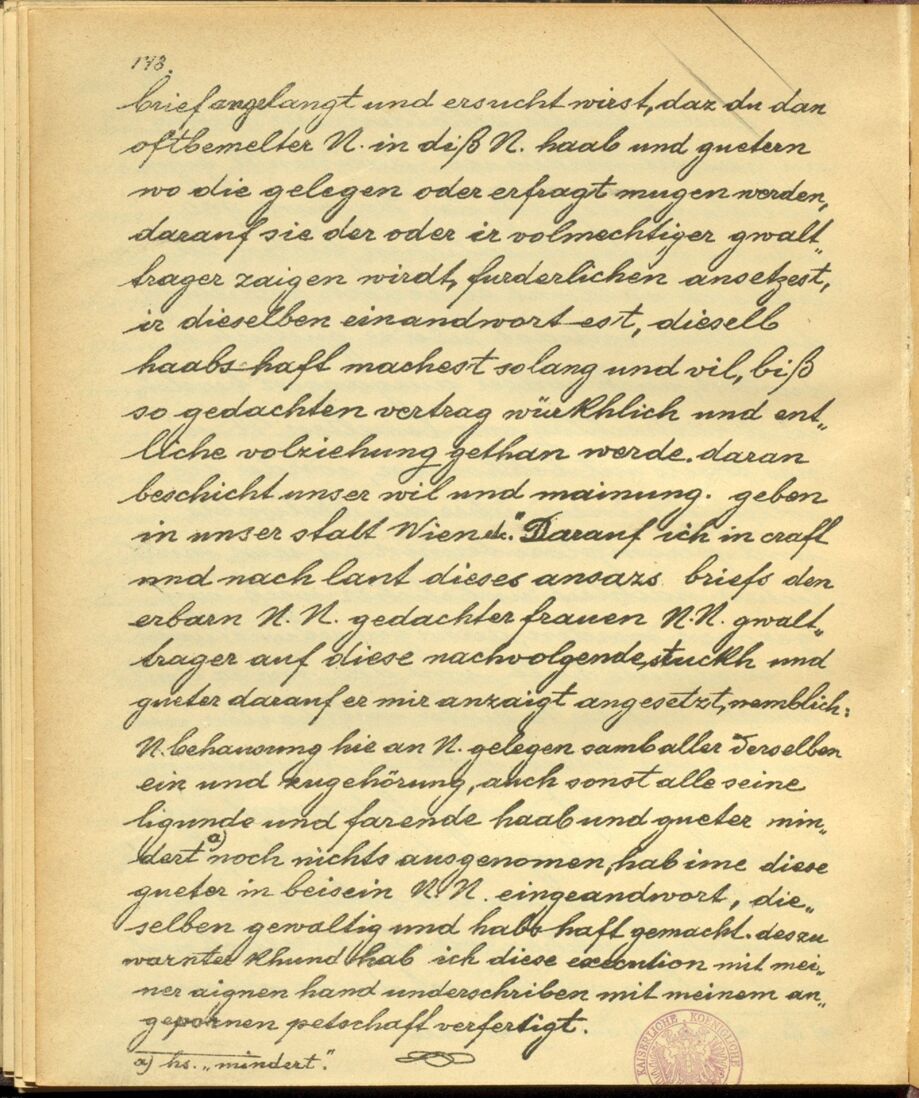 173.
brief angelangt und ersucht wirst, daz du dan
oftbemelter N. in diß N. haab und guetern
wo die gelegen oder erfragt mugen werden,
darauf sie der oder ir volmechtiger gwalt„
trager zaigen wirdt, furderlichen ansetzest,
ir dieselben einandwort-est, dieselb
haabs-haft machest solang und vil, biß
so gedachten vertrag würkhlich und ent„
liche volziehung gethan werde. daran
beschicht unser wil und mainung. geben
in unser statt Wien etc." Darauf ich in craft
und nach laut dieses ansazs briefs den
erbarn N. N. gedachter frauen N.N. gwalt„
trager auf diese nachvolgende stuckh und
gueter darauf er mir anzaigt angesetzt, nemblich:
N. behausung hie an N. gelegen sambt aller derselben
ein und zugehörung, auch sonst alle seine
ligunde und farende haab und gueter min„
dert a) noch nichts ausgenomen, hab ime diese
gueter in beisein N.N. eingeandwort, die„
selben gewaltig und habhaft gemacht. des zu
warnter khund hab ich diese execution mit mei„
ner aignen hand underschriben mit meinem an„
gepornen petschaft verfertigt.
a) hs. „mindert".
KAISERLICHE KOENIGLICHE